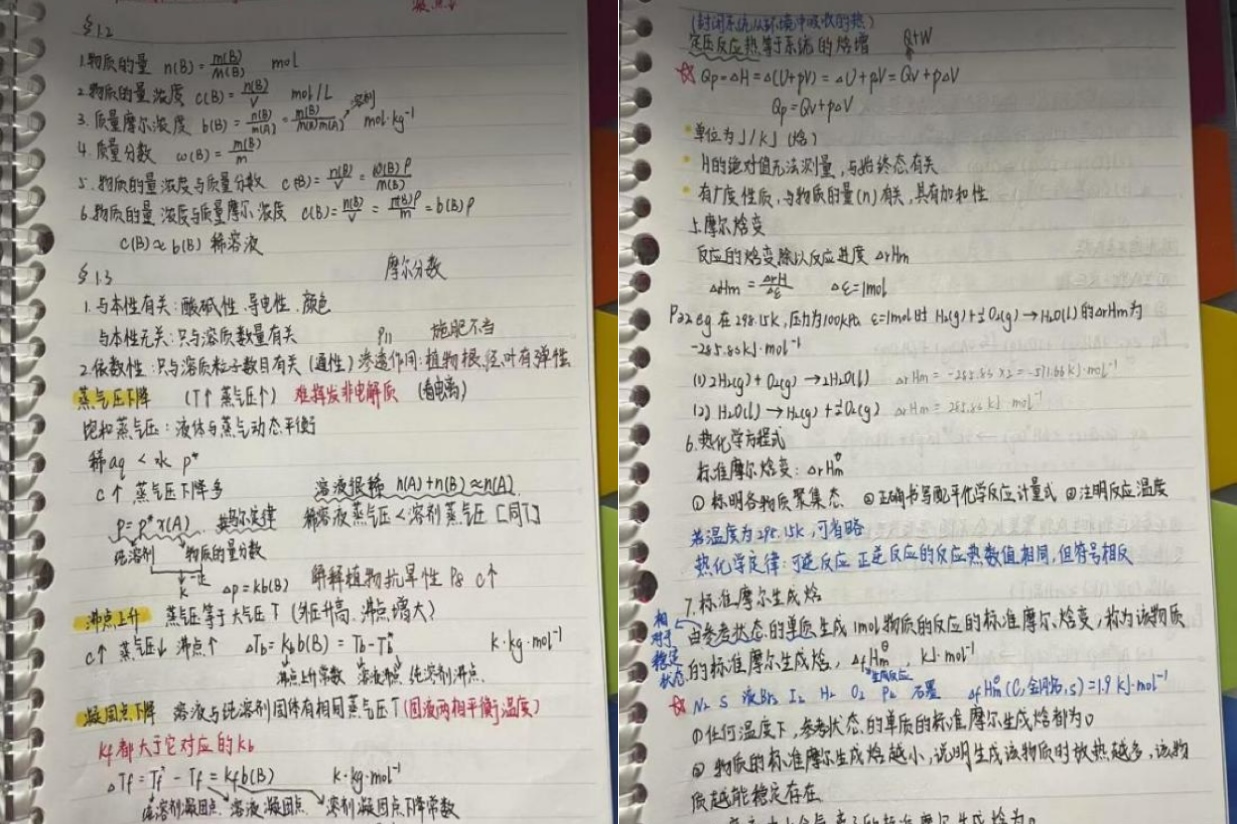 §1.2
1.物质的量 n(B)=m(B)/M(B) mol
2.物质的量浓度 c(B)=n(B)/V mol/L
3.质量摩尔浓度 b(B)=n(B)/m(A)=m(B)/M(B)m(A) 溶剂 mol·kg⁻¹
4.质量分数 ω(B)=m(B)/m
5.物质的量浓度与质量分数 c(B)=n(B)/V=ω(B)ρ/M(B)
6.物质的量浓度与质量摩尔浓度 c(B)=n(B)/V=n(B)ρ/m=b(B)ρ
c(B)≈b(B) 稀溶液
§1.3 摩尔分数
1.与本性有关:酸碱性、导电性、颜色
与本性无关:只与溶质数量有关 P11 施肥不当
2.依数性:只与溶质粒子数目有关(通性)渗透作用:植物根,茎,叶有弹性
蒸气压下降 (T↑ 蒸气压↑) 难挥发非电解质 (看电离)
饱和蒸气压:液体与蒸气动态平衡
稀aq < 水 p*
c↑ 蒸气压下降多 溶液很稀 n(A)+n(B)≈n(A)
p=p*x(A) 拉乌尔定律 稀溶液蒸气压<溶剂蒸气压 [同T]
纯溶剂 物质的量分数
k一定 Δp=kb(B) 解释植物抗旱性 P8 c↑
沸点上升 蒸气压等于大气压T(外压升高,沸点增大)
c↑ 蒸气压↓ 沸点↑ ΔTb=Kbb(B)=Tb-Tb* k·kg·mol⁻¹
沸点上升常数 溶液沸点 纯溶剂沸点
凝固点下降 溶液与纯溶剂固体有相同蒸气压T(固液两相平衡温度)
Kf都大于它对应的Kb
ΔTf=Tf*-Tf=kfb(B) k·kg·mol⁻¹
纯溶剂凝固点 溶液凝固点 溶剂凝固点下降常数
(封闭系统从环境中吸收的热)
定压反应热等于系统的焓增 Q+W
☆ Qp=ΔH=Δ(U+pV)=ΔU+pΔV=Qv+pΔV
Qp=Qv+pΔV
单位为J/kJ(焓)
H的绝对值无法测量,与始终态有关
有广度性质,与物质的量(n)有关,具有加和性
5.摩尔焓变
反应的焓变除以反应进度 ΔrHm
ΔrHm=ΔrH/Δξ Δξ=1mol
P22 eg 在298.15K,压力为100kPa ξ=1mol时 H₂(g)+½O₂(g)→H₂O(l)的ΔrHm为
-285.83kJ·mol⁻¹
(1) 2H₂(g)+O₂(g)→2H₂O(l) ΔrHm=-285.83×2=-571.66kJ·mol⁻¹
(2) H₂O(l)→H₂(g)+½O₂(g) ΔrHm=285.83kJ·mol⁻¹
6.热化学方程式
标准摩尔焓变:ΔrHm⊖
①标明各物质聚集态 ②正确书写配平化学反应计量式 ③注明反应温度
若温度为298.15K,可省略
热化学定律:可逆反应 正逆反应的反应热数值相同,但符号相反
7.标准摩尔生成焓
相对于稳定状态
由参考状态的单质生成1mol物质的反应的标准摩尔焓变,称为该物质
的标准摩尔生成焓,ΔfHm⊖,kJ·mol⁻¹
生成反应
☆ N₂ S 液Br₂ I₂ H₂ O₂ P白 石墨 ΔfHm⊖(C,金刚石,s)=1.9kJ·mol⁻¹
①任何温度下,参考状态的单质的标准摩尔生成焓都为0
②物质的标准摩尔生成焓越小,说明生成该物质时放热越多,该物
质越能稳定存在